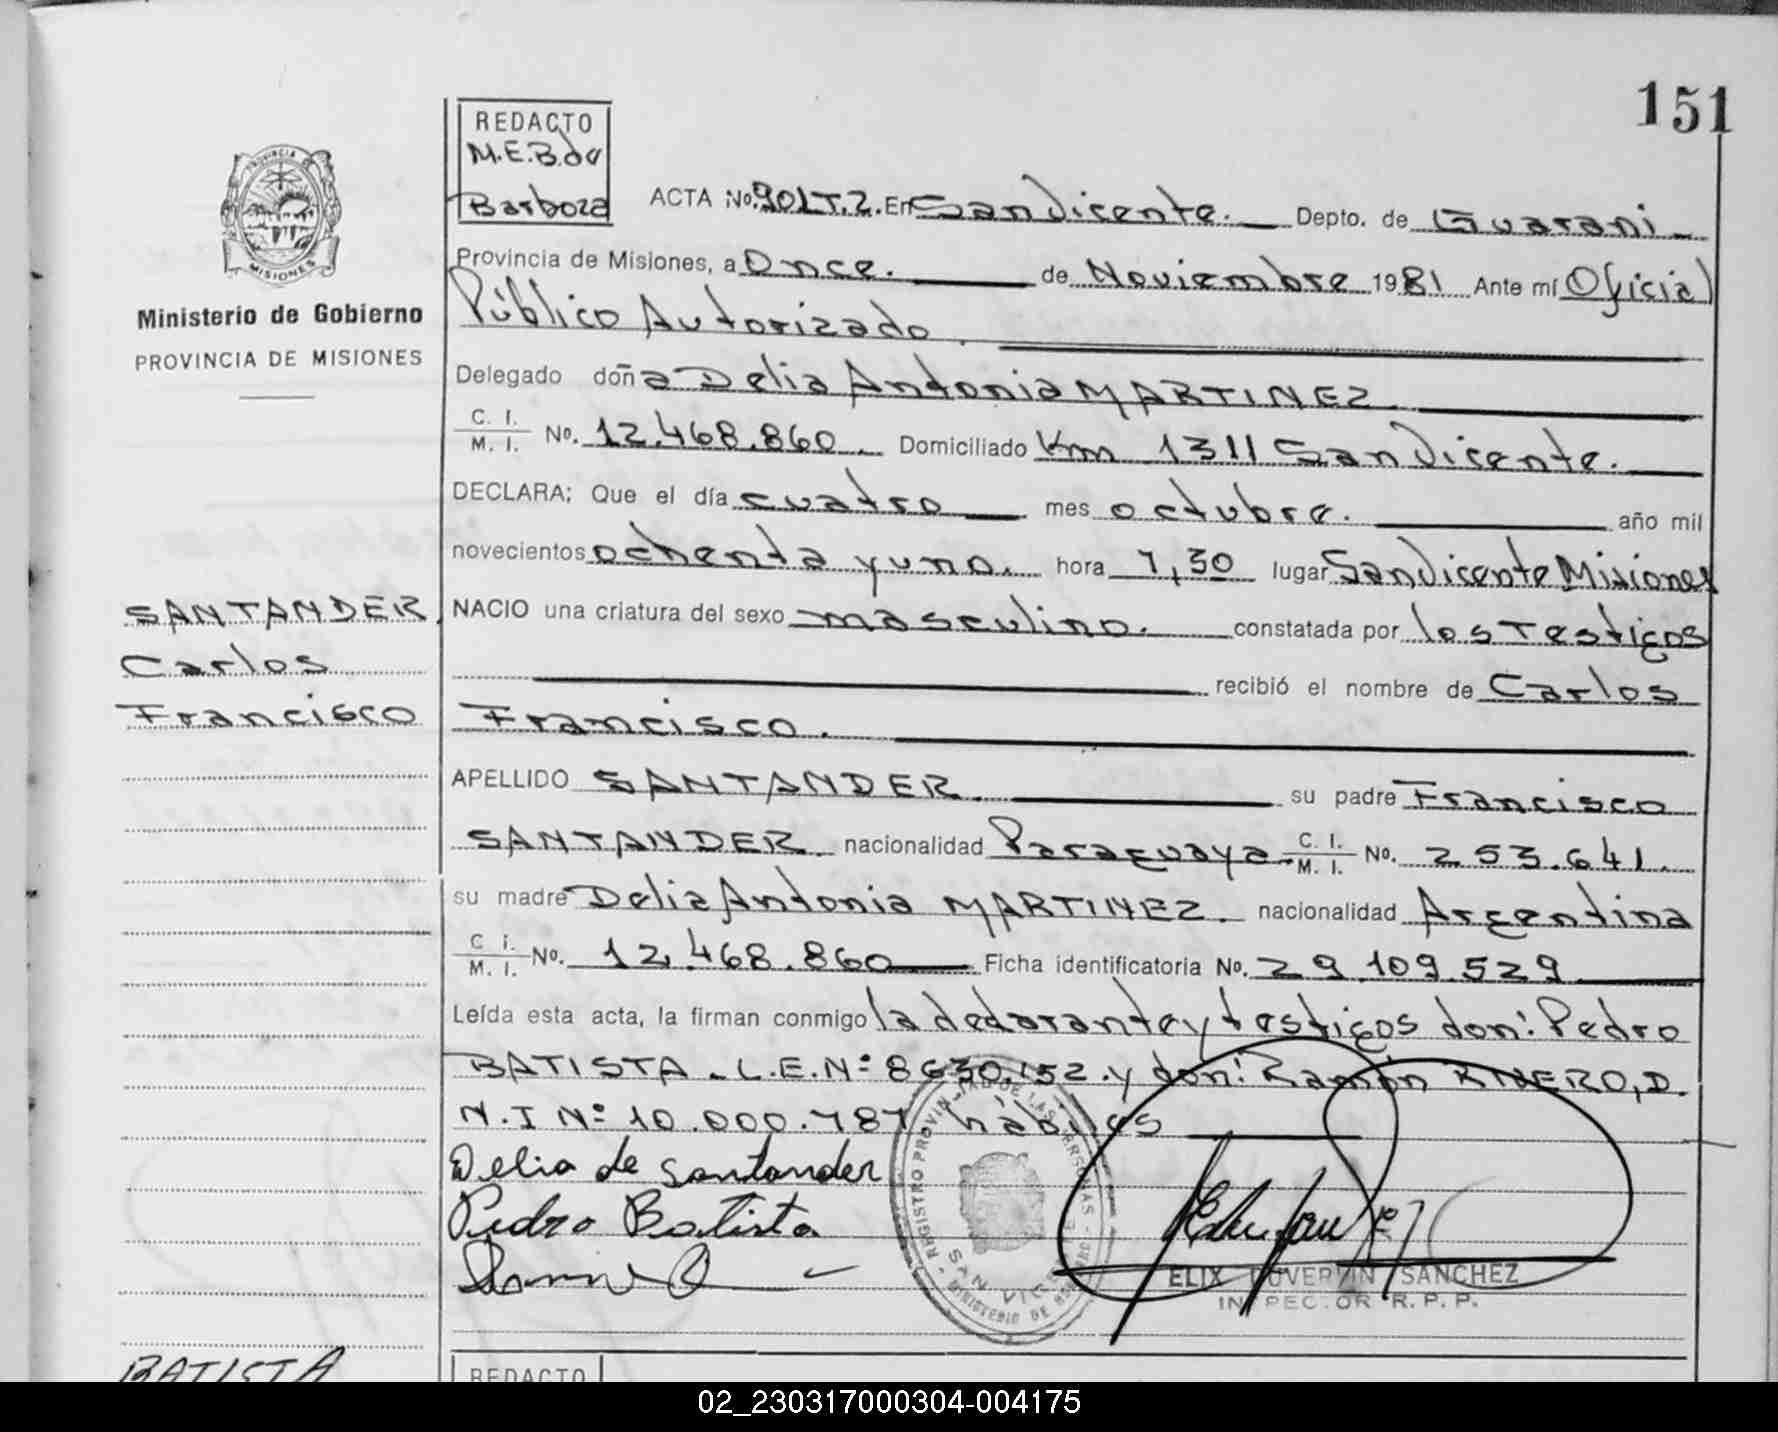 151
REDACTO
M.E.B.da
Barboza
ACTA No. 901 T.2. En San Vicente. Depto. de Guarani
Provincia de Misiones, a Once. de Noviembre 1981 Ante mí Oficial
Público Autorizado.
Delegado doña Delia Antonia MARTINEZ
C. I.
M. I. No. 12.468.860. Domiciliado Km 1311 San Vicente.
DECLARA: Que el día cuatro mes octubre. año mil
novecientos ochenta y uno. hora 7,30 lugar San Vicente Misiones
NACIO una criatura del sexo masculino. constatada por los Testigos
recibió el nombre de Carlos
Francisco.
APELLIDO SANTANDER. su padre Francisco
SANTANDER. nacionalidad Paraguaya C. I.
M. I. No. 253.641.
su madre Delia Antonia MARTINEZ. nacionalidad Argentina
C. I.
M. I. No. 12.468.860 Ficha identificatoria No. 29.109.529
Leída esta acta, la firman conmigo la declarante y testigos don: Pedro
BATISTA. L.E.Nº 8630.152. y don: Ramón RIVERO, D.
N.I Nº 10.000.787 hábiles
Delia de Santander
Pedro Batista
ELIX SANCHEZ
INSPECTOR R. P. P.
REGISTRO PROVINCIAL DE LAS PERSONAS - MINISTERIO DE
SAN VICENTE
REDACTO
PROVINCIA DE
MISIONES
Ministerio de Gobierno
PROVINCIA DE MISIONES
SANTANDER,
Carlos
Francisco
BATISTA
02_230317000304-004175